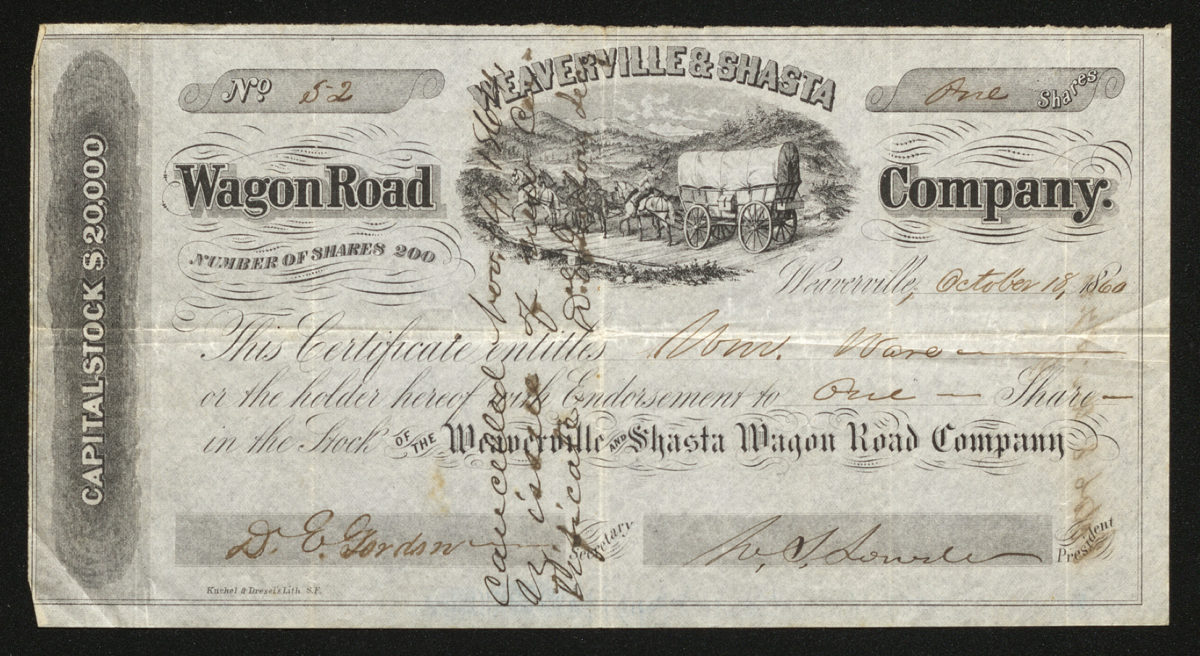 CAPITAL STOCK $20,000
No 52
WEAVERVILLE & SHASTA
One Shares
Wagon Road Company.
NUMBER OF SHARES 200
Weaverville, October 18, 1860
This Certificate entitles Wm. Ware
or the holder hereof with Endorsement to One Share
in the Stock OF THE Weaverville AND Shasta Wagon Road Company
D. E. Gordon Secretary
W. S. Lowde President
Kuchel & Dresel's Lith. S.F.
Cancelled
issue of
tificate D. E. Gordon